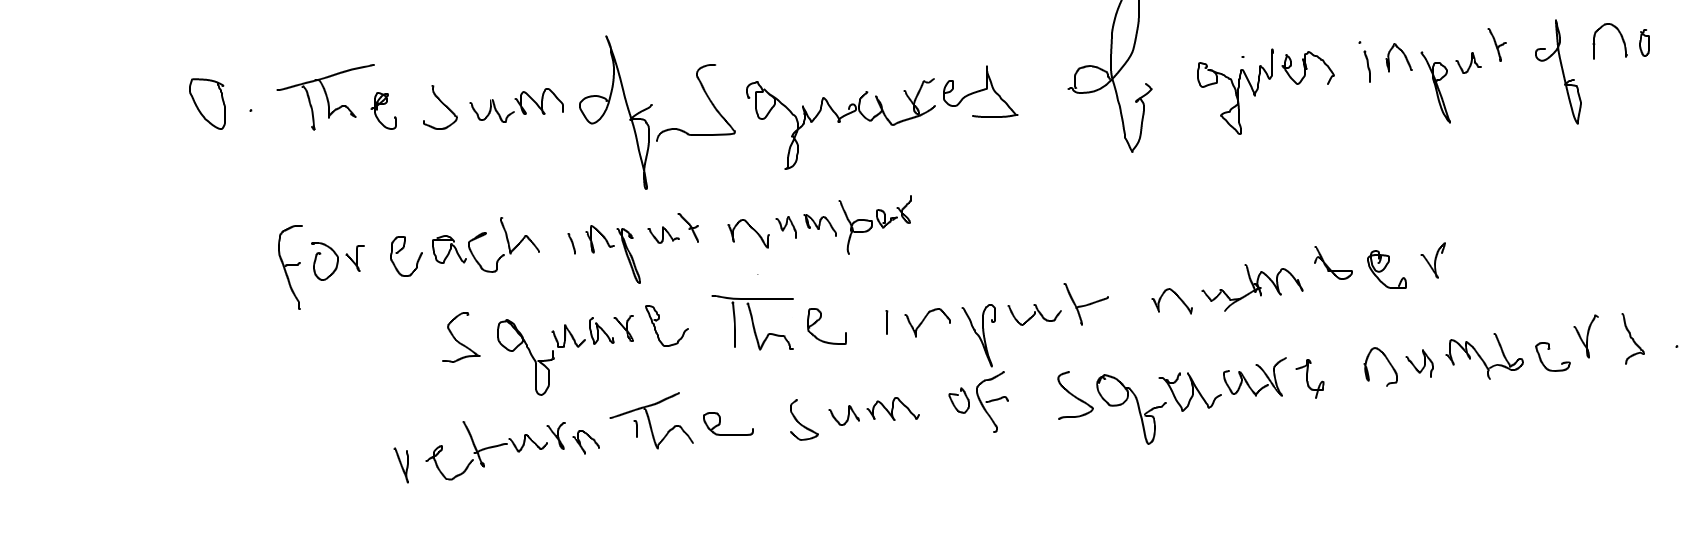 0. The sum of squares of given input of no
for each input number
square The input number
return The sum of square numbers.